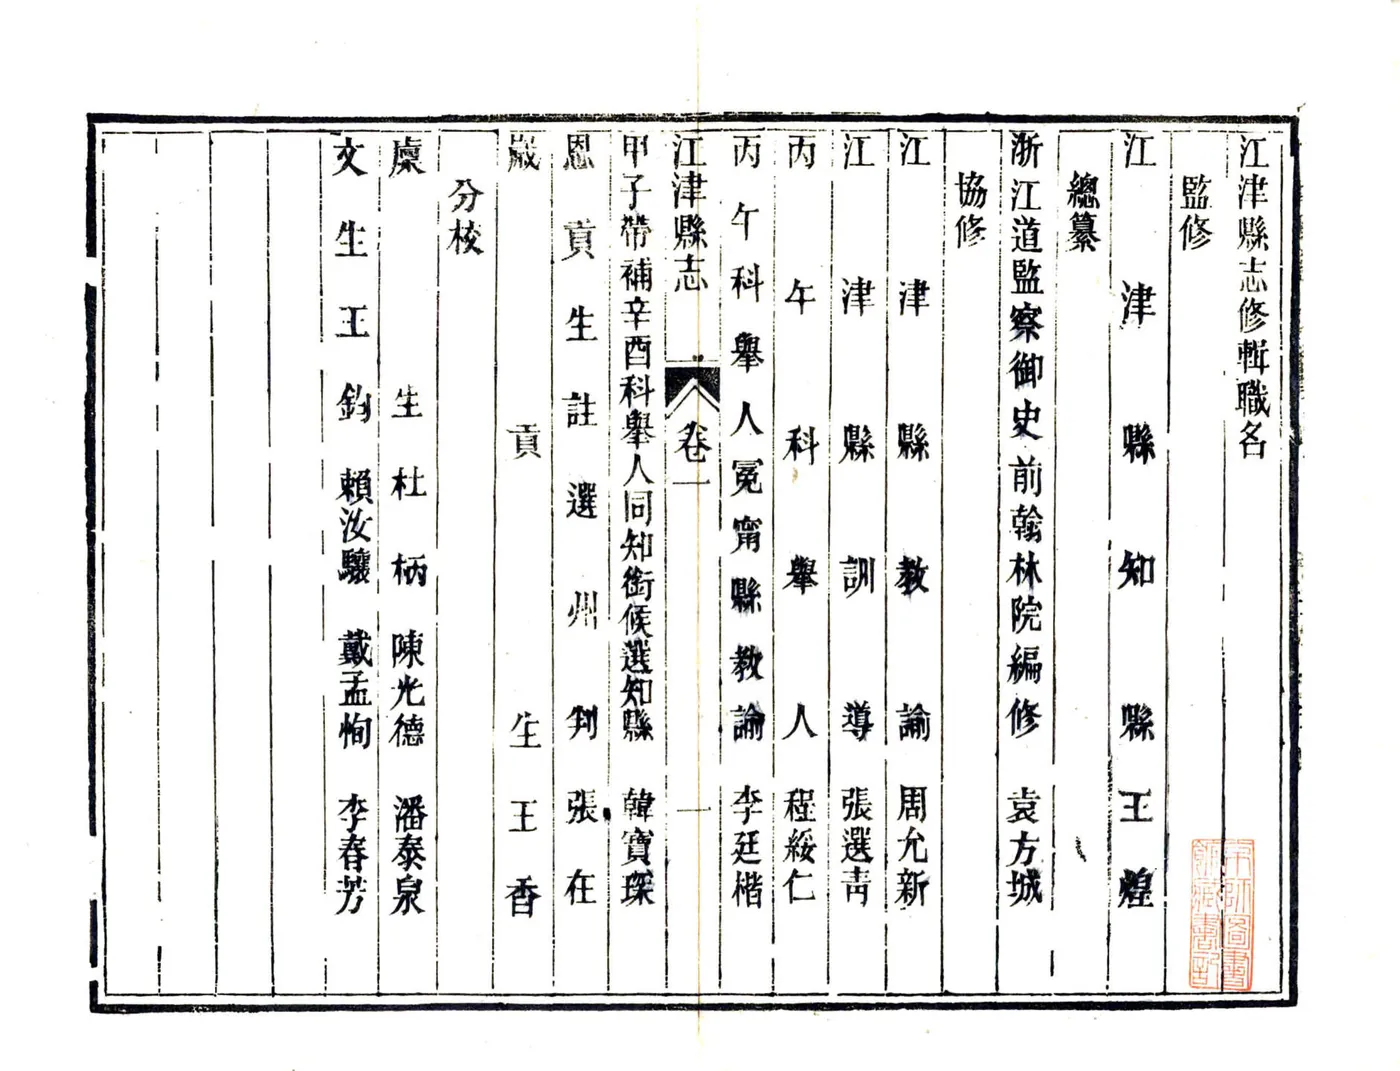 江津縣志修輯職名
監修
江津縣知縣王煌
總纂
浙江道監察御史前翰林院編修 袁方城
協修
江津縣教諭 周允新
江津縣訓導 張選青
丙午科舉人 程綏仁
丙午科舉人冕甯縣教諭 李廷楷
江津縣志 卷一 一
甲子帶補辛酉科舉人同知銜候選知縣 韓寶琛
恩貢生註選州判張在
歲貢生王香
分校
廩生杜柄 陳光德 潘泰泉
文生王鈞 賴汝驤 戴孟恂 李春芳